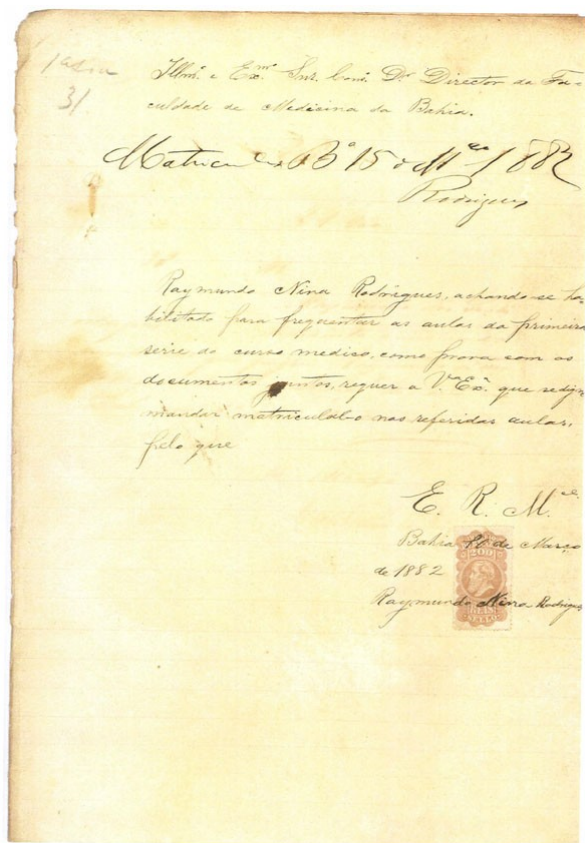 1ª
31
Illmº. e Exmº. Snr. Cons. Dr. Director da Fa-
culdade de Medicina da Bahia.
Bª 15 de Mço 1882
Rodrigues
Raymundo Nina Rodrigues, achando-se ha-
bilitado para frequentar as aulas da primeira
serie do curso medico, como prova com os
documentos juntos, requer a Vª. Exª. que se dign
mandar matriculal-o nas referidas aulas,
pelo que
E. R. M.ce
Bahia de Março
de 1882
Raymundo Nina Rodrigues
200
REIS